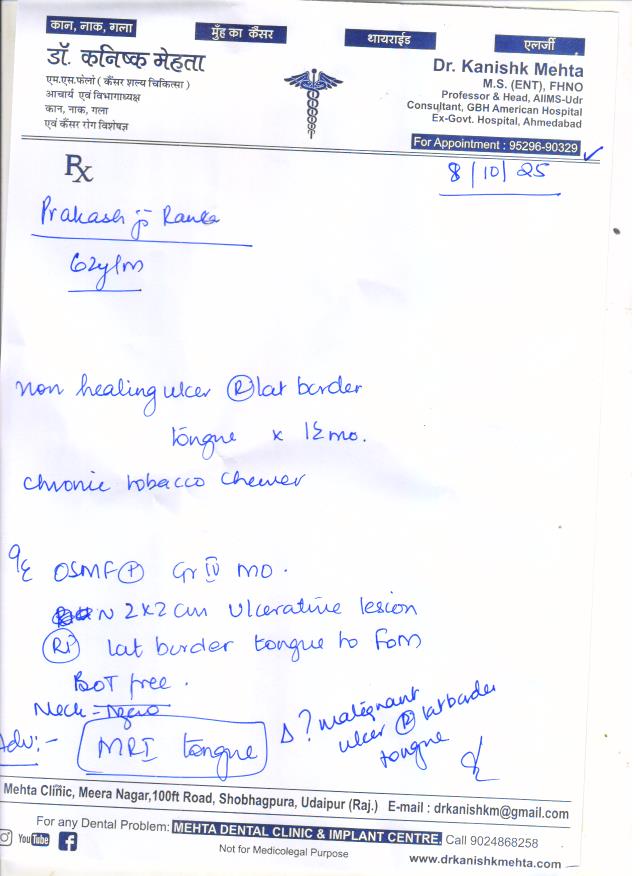 कान, नाक, गला
मुँह का कैंसर
थायराईड
एलर्जी
डॉ. कनिष्क मेहता
एम.एस.फेलो ( कैंसर शल्य चिकित्सा )
आचार्य एवं विभागाध्यक्ष
कान, नाक, गला
एवं कैंसर रोग विशेषज्ञ
Dr. Kanishk Mehta
M.S. (ENT), FHNO
Professor & Head, AIIMS-Udr
Consultant, GBH American Hospital
Ex-Govt. Hospital, Ahmedabad
For Appointment : 95296-90329
Rx
8/10/25
Prakash ji
62y/m
non healing ulcer (R) lat border
tongue x 1½ mo.
chronic tobacco chewer
O/E OSMF (+) Gr IV MO.
2x2 cm ulcerative lesion
(Rt) lat border tongue to FOM
BOT free.
Neck =
Adv:- MRI tongue
Δ ? malignant
ulcer (R) lat border
tongue
Mehta Clinic, Meera Nagar,100ft Road, Shobhagpura, Udaipur (Raj.) E-mail : drkanishkm@gmail.com
For any Dental Problem: MEHTA DENTAL CLINIC & IMPLANT CENTRE, Call 9024868258
YouTube
Not for Medicolegal Purpose
www.drkanishkmehta.com